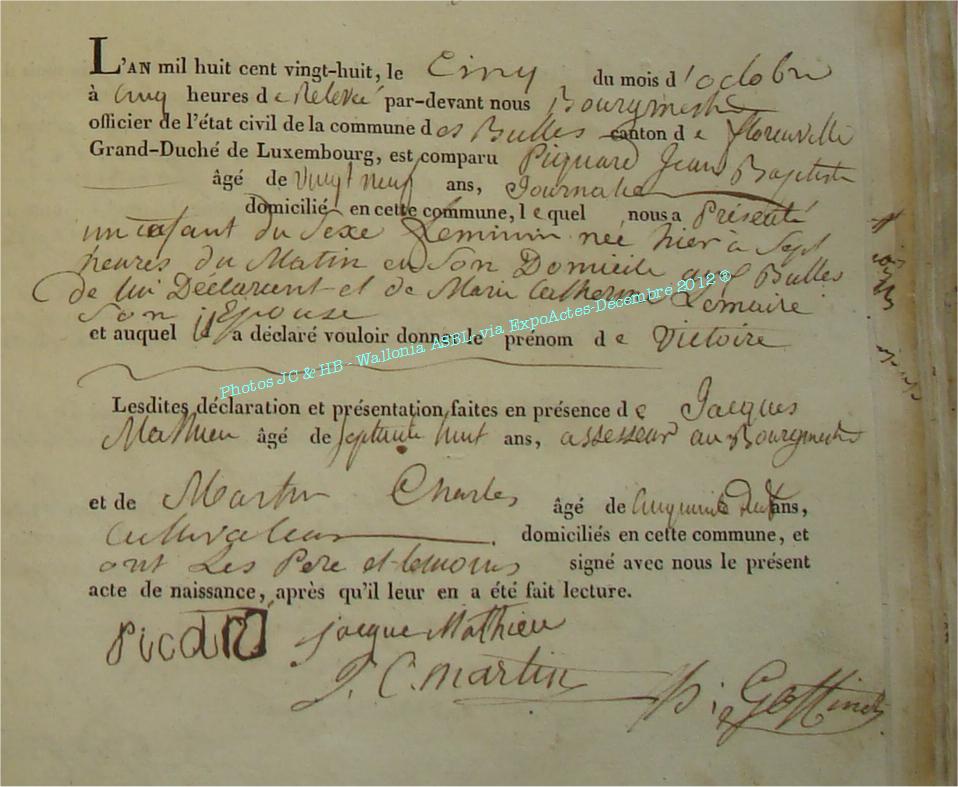 L'AN mil huit cent vingt-huit, le Cinq du mois d'octobre
à Cinq heures de Relevé par-devant nous Bourgmestre
officier de l'état civil de la commune des Bulles canton de florenville
Grand-Duché de Luxembourg, est comparu Piquard Jean Baptiste
âgé de vingt neuf ans, Journalier
domicilié en cette commune, lequel nous a Présenté
un enfant du Sexe feminin née hier à Sept
heures du Matin en Son Domicile Bulles
de lui Déclarant et de Marie Catherine Lemaire
Son Epouse
et auquel il a déclaré vouloir donner le prénom de Victoire
Photos JC & HB - Wallonia ASBL, via ExpoActes-Décembre 2012 ®
Lesdites déclaration et présentation faites en présence de Jacques
Mathieu âgé de septante huit ans, assesseur au Bourgmestre
et de Martin Charles âgé de Cinquante ans,
Cultivateur domiciliés en cette commune, et
ont Les Pere et temoins signé avec nous le présent
acte de naissance, après qu'il leur en a été fait lecture.
Picard Jacque Mathieu
J. C. Martin